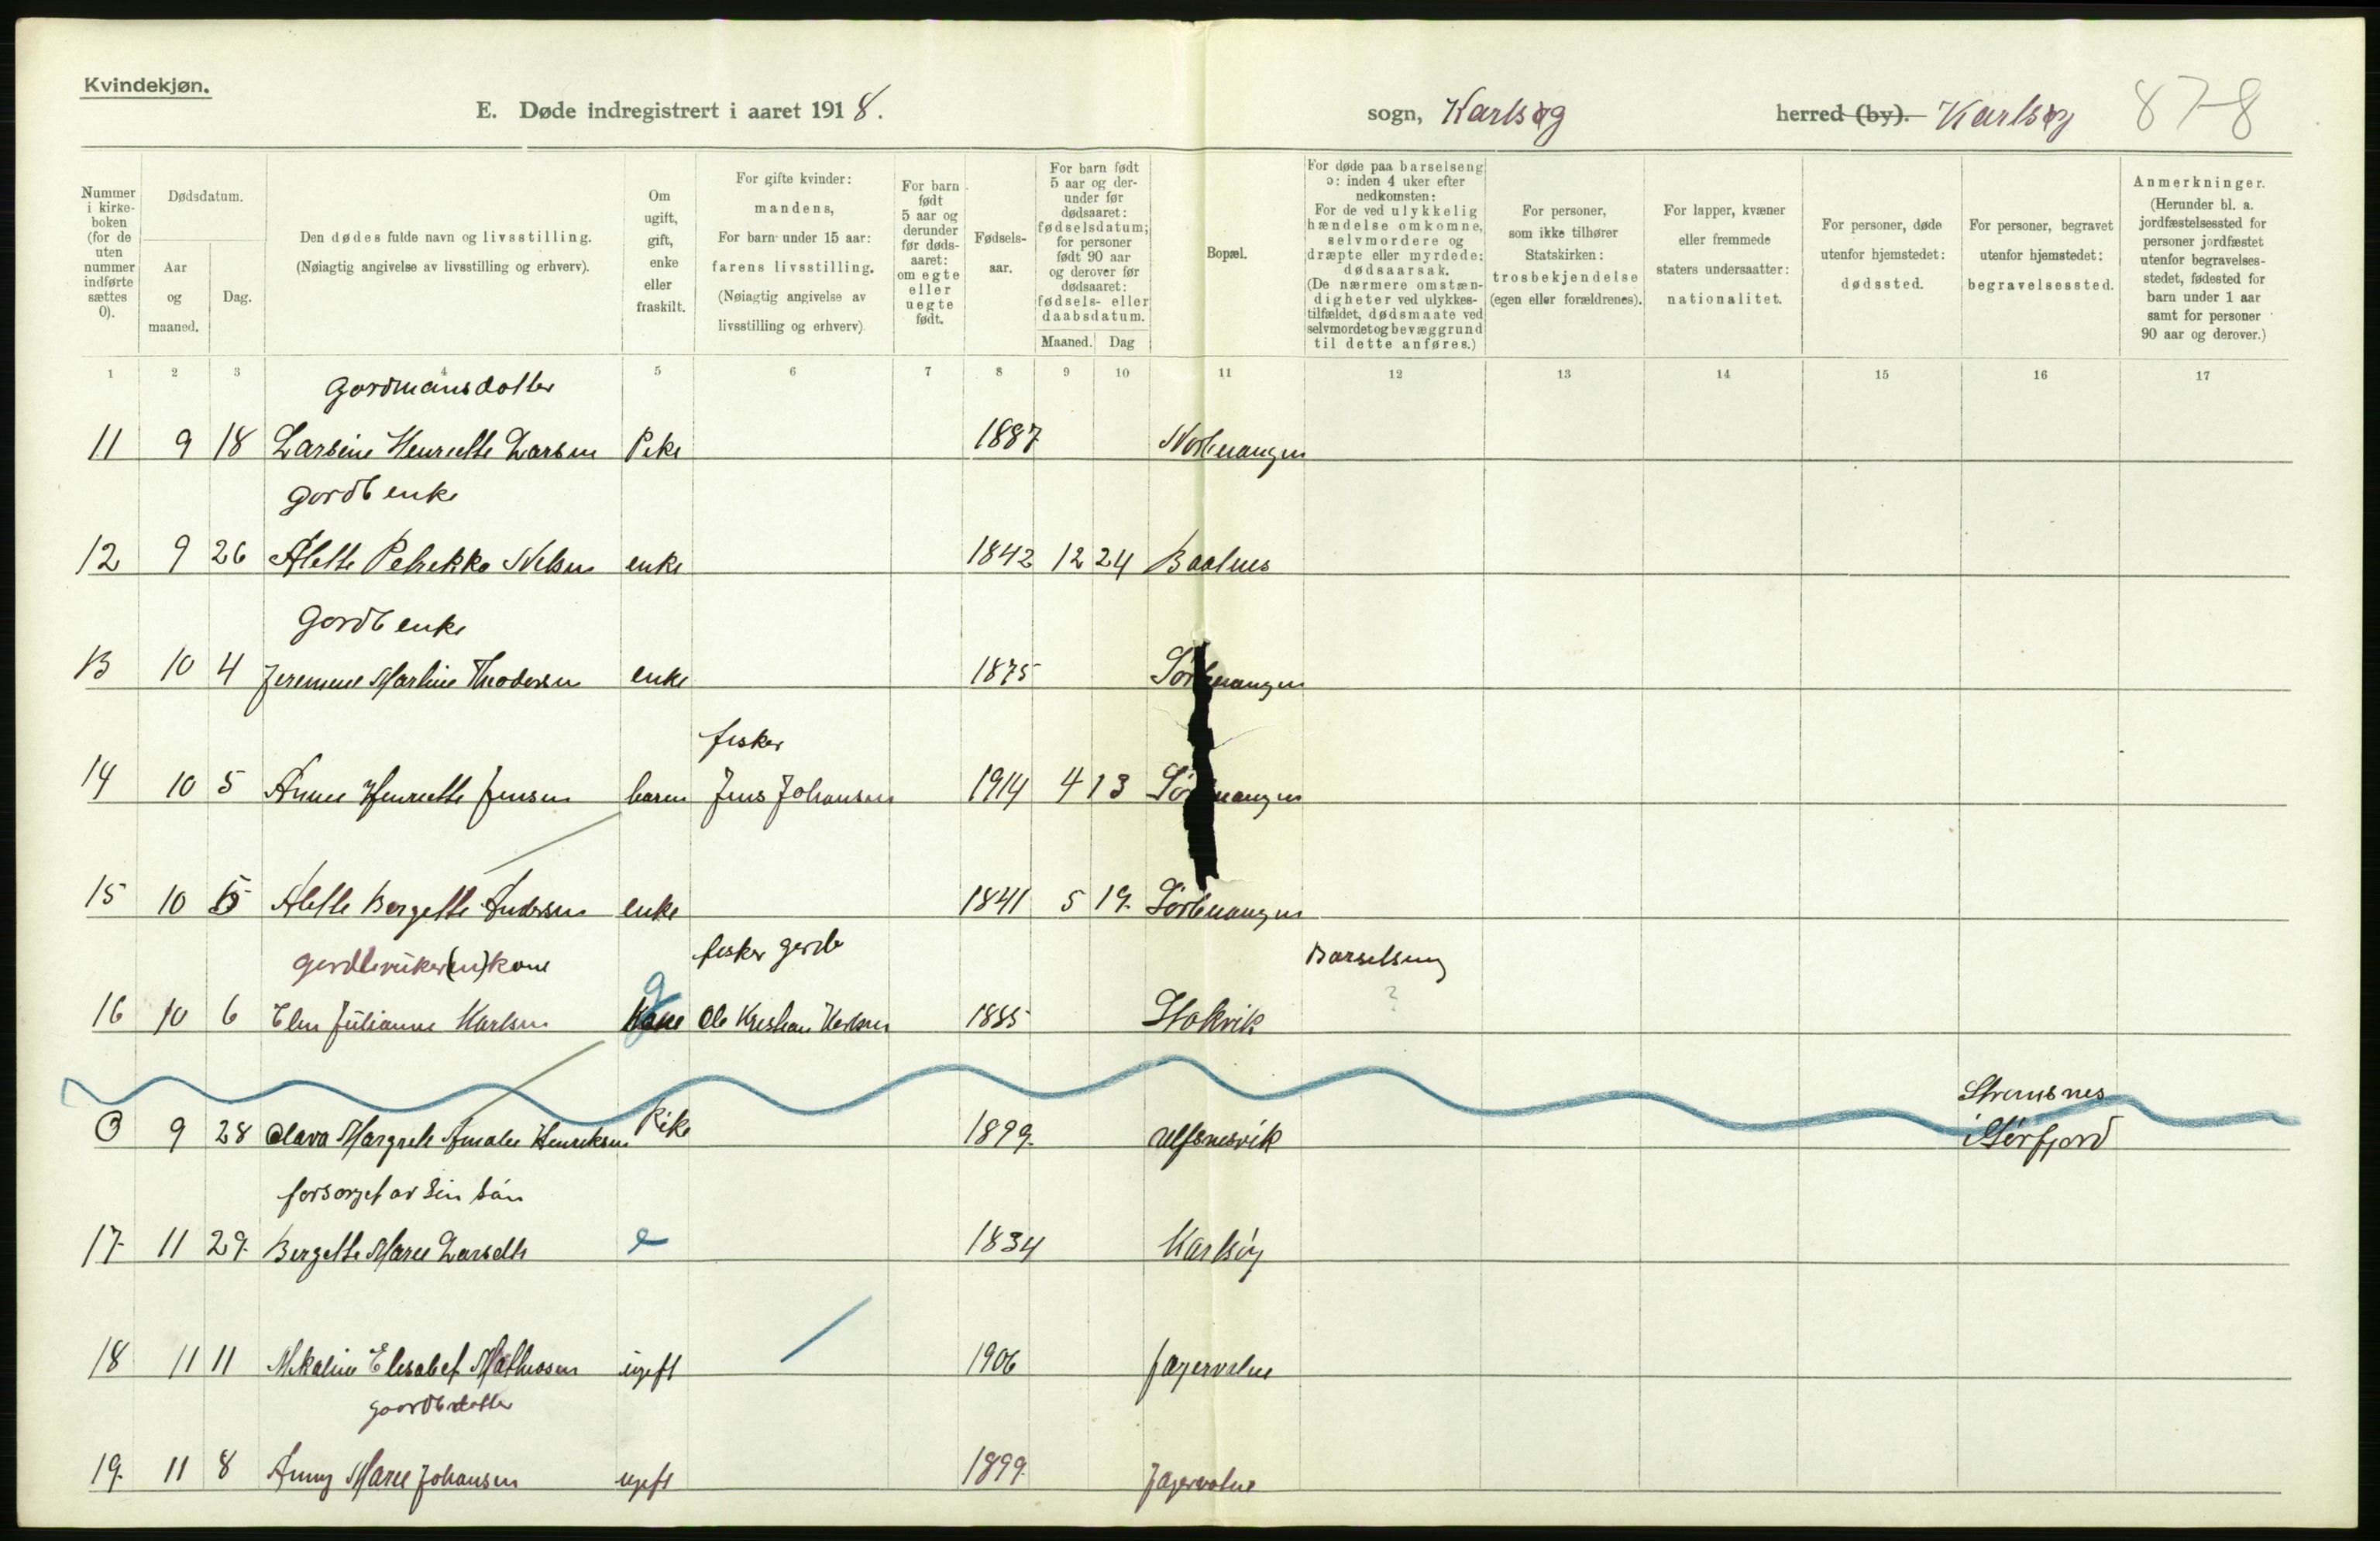 Kvindekjøn.
E. Døde indregistrert i aaret 1918.
sogn, Karlsøy
herred (by). Karlsøy
87-8
Nummer i kirkeboken (for de uten nummer indførte sættes 0).
Dødsdatum.
Aar og maaned.
Dag.
Den dødes fulde navn og livsstilling.
(Nøiagtig angivelse av livsstilling og erhverv).
Om ugift, gift, enke eller fraskilt.
For gifte kvinder: mandens,
For barn under 15 aar: farens livsstilling.
(Nøiagtig angivelse av livsstilling og erhverv)
For barn født 5 aar og derunder før dødsaaret: om egte eller uegte født.
Fødselsaar.
For barn født 5 aar og derunder før dødsaaret: fødselsdatum; for personer født 90 aar og derover før dødsaaret: fødsels- eller daabsdatum.
Maaned.
Dag
Bopæl.
For døde paa barselseng ɔ: inden 4 uker efter nedkomsten:
For de ved ulykkelig hændelse omkomne, selvmordere og dræpte eller myrdede: dødsaarsak.
(De nærmere omstændigheter ved ulykkestilfældet, dødsmaate ved selvmordet og bevæggrund til dette anføres.)
For personer, som ikke tilhører Statskirken: trosbekjendelse (egen eller forældrenes).
For lapper, kvæner eller fremmede staters undersaatter: nationalitet.
For personer, døde utenfor hjemstedet: dødssted.
For personer, begravet utenfor hjemstedet: begravelsessted.
Anmerkninger.
(Herunder bl. a. jordfæstelsessted for personer jordfæstet utenfor begravelsesstedet, fødested for barn under 1 aar samt for personer 90 aar og derover.)
1 2 3 4 5 6 7 8 9 10 11 12 13 14 15 16 17
Gordmansdatter
11 9 18 Larsine Henriette Larsen Pike 1887 Nordlenangen
Gordb enke
12 9 26 Alette Petrekka Nilsen enke 1842 12 24 Baalnes
Gordb enke
13 10 4 Martine Theodorsen enke 1875 Sørlenangen
fisker
14 10 5 Anne Henriette Jensen barn Jens Johansen 1914 4 13 Sørlenangen
15 10 5 Alette Bergette Andersen enke 1841 5 19 Sørlenangen
fisker gardb
Barselseng
16 10 6 Elen Julianne Karlsen Kone g Ole Kristian Karlsen 1885 Stakvik
?
Strømsnes
0 9 28 Clara Margrete Amalie Henriksen Pike 1899 Ulfsnesvik i Sørfjord
forsørget av sin søn
17 11 29 Bergette Marie e 1834 Karlsøy
18 11 11 Mikaline Elisabet Mathissen ugift 1906 Jægervatne
gaardbdatter
19 11 8 Anny Marie Johansen ugift 1899 Jægervatne